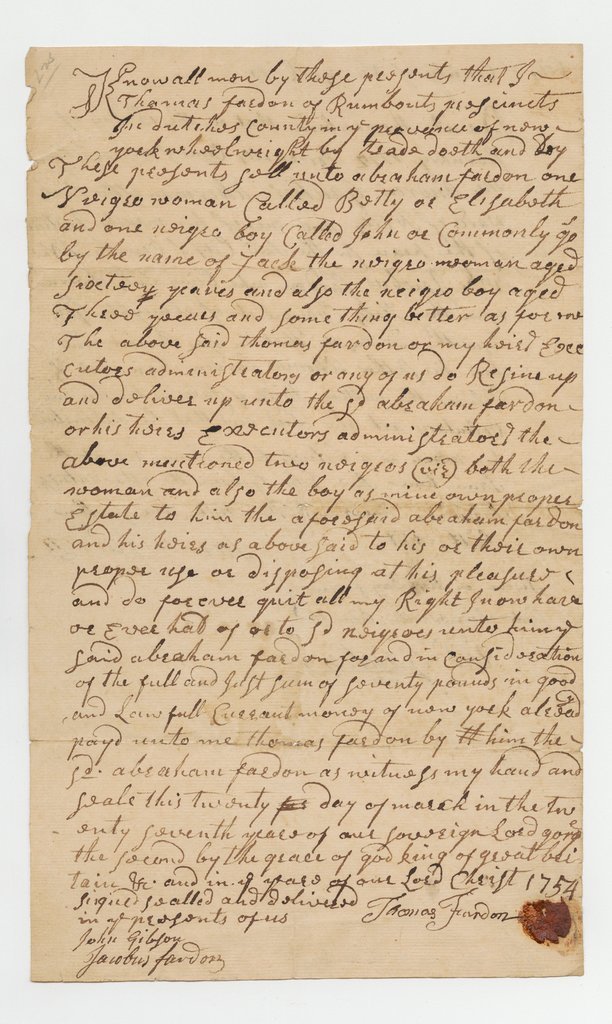 Know all men by these presents that I
Thomas fardon of Rumbouts precincts
In dutches County in ye provance of new
york wheelwright by trade doeth and by
These presents sell unto abraham fardon one
Neigro woman Called Betty or Elisabeth
and one neigro boy Called John or Commonly go
by the name of Jack the neigro woman aged
sixteen yeares and also the neigro boy aged
Three yeares and something better as for me
The above said thomas fardon or my heirs Exec
cutors administrators or any of us do Resine up
and deliver up unto the sd abraham fardon
or his heirs Executors administrators the
above mentioned two neigros (viz) both the
woman and also the boy as mine own proper
Estate to him the aforesaid abraham fardon
and his heirs as above said to his or their own
proper use or disposing at his pleasure
and do forever quit all my Right I now have
or Ever had of or to sd neigroes unto him ye
said abraham fardon for and in Consideration
of the full and Just sum of seventy pounds in good
and Lawfull Currant money of new york already
payd unto me thomas fardon by him the
sd. abraham fardon as witness my hand and
seale this twenty day of march in the tw
enty seventh yeare of our sovereign Lord gorge
the second by the grace of god king of great bri
tain &c and in ye yeare of our Lord Christ 1754
signed sealled and delivered
in ye presents of us Thomas Fardon
John Gibson
Jacobus fardon